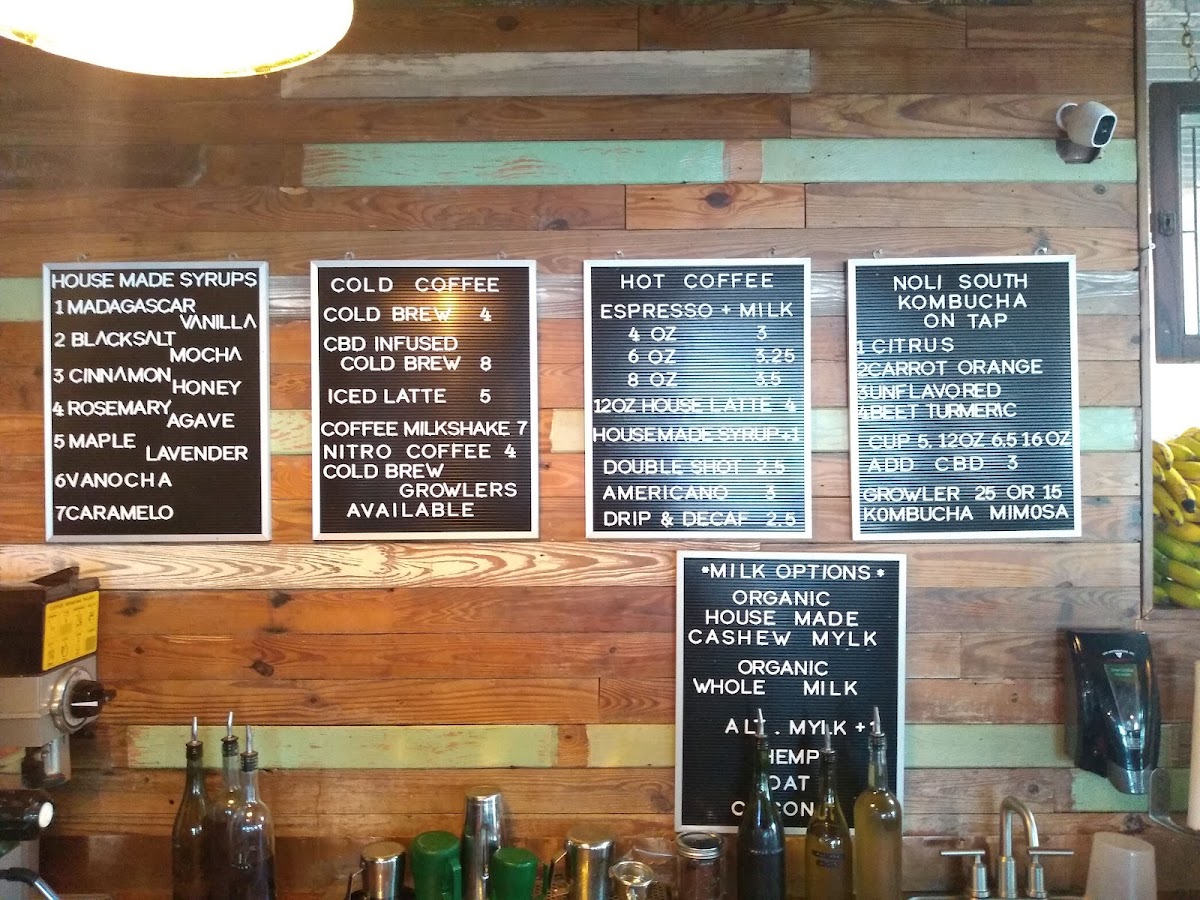 HOUSE MADE SYRUPS
1 MADAGASCAR
VANILLA
2 BLACKSALT
MOCHA
3 CINNAMON
HONEY
4 ROSEMARY
AGAVE
5 MAPLE
LAVENDER
6VANOCHA
7CARAMELO
COLD COFFEE
COLD BREW 4
CBD INFUSED
COLD BREW 8
ICED LATTE 5
COFFEE MILKSHAKE 7
NITRO COFFEE 4
COLD BREW
GROWLERS
AVAILABLE
HOT COFFEE
ESPRESSO + MILK
4 OZ 3
6 OZ 3.25
8 OZ 3.5
12OZ HOUSE LATTE 4
HOUSEMADE SYRUP +1
DOUBLE SHOT 2.5
AMERICANO 3
DRIP & DECAF 2.5
NOLI SOUTH
KOMBUCHA
ON TAP
1 CITRUS
2CARROT ORANGE
3UNFLAVORED
4BEET TURMERIC
CUP 5. 12OZ 6.5 16OZ
ADD CBD 3
GROWLER 25 OR 15
KOMBUCHA MIMOSA
*MILK OPTIONS*
ORGANIC
HOUSE MADE
CASHEW MYLK
ORGANIC
WHOLE MILK
ALT. MYLK +1
HEMP
OAT